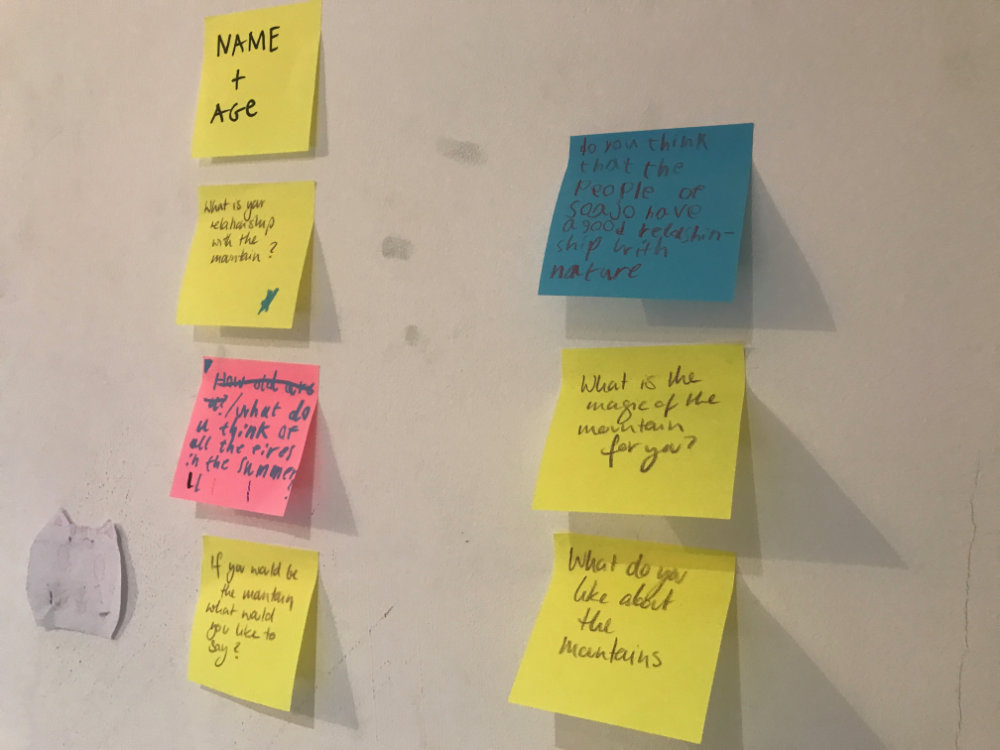 NAME
+
AGe
What is your
relationship
with the
mantain ?
How old are
u?/what do
u think of
all the fires
in the summer
!
If you would be
the mantain
what would
you like to
say?
do you think
that the
People of
Soajo have
a good relashin-
ship with
nature
What is the
magic of the
mountain
for you?
What do you
like about
the
mantains